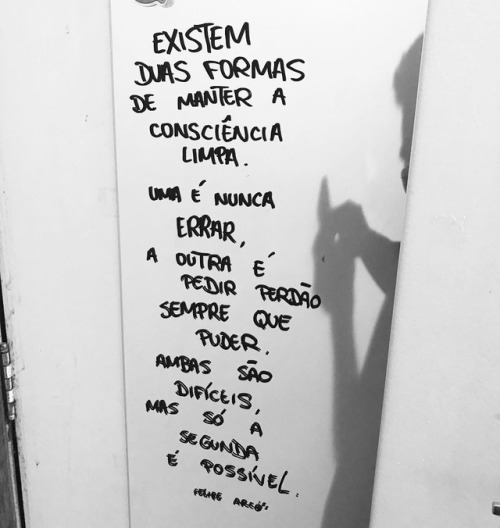 EXISTEM
DUAS FORMAS
DE MANTER A
CONSCIÊNCIA
LIMPA.
UMA É NUNCA
ERRAR,
A OUTRA É
PEDIR PERDÃO
SEMPRE QUE
PUDER.
AMBAS SÃO
DIFÍCEIS,
MAS SÓ A
SEGUNDA
É POSSÍVEL.
FELIPE